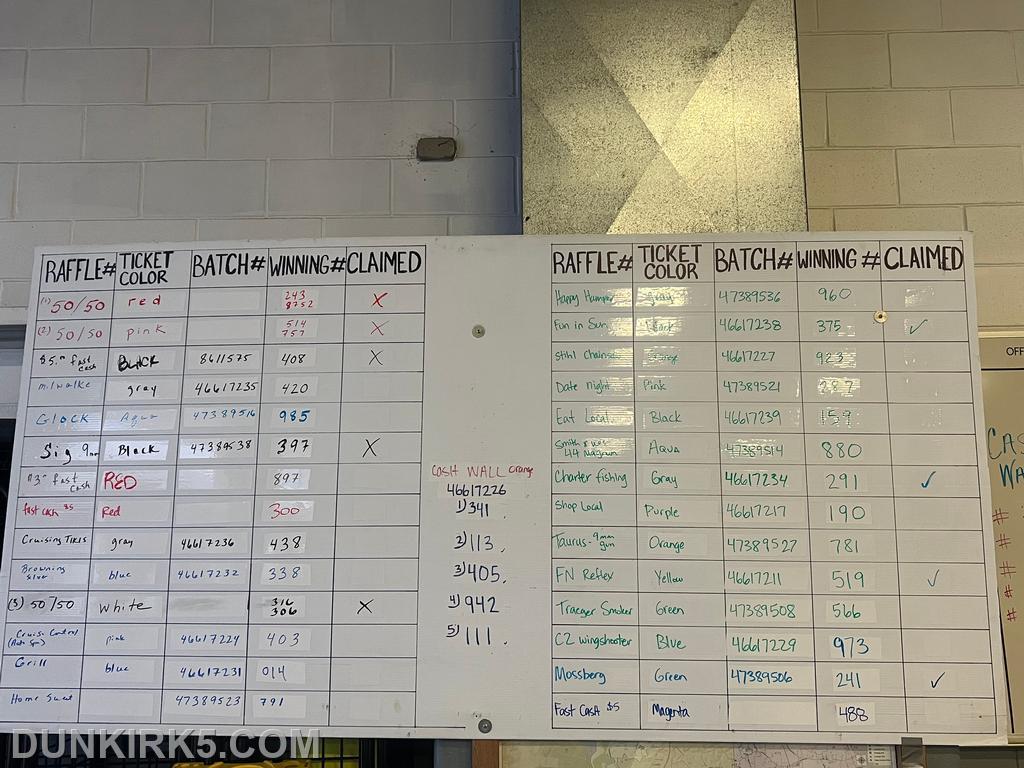 RAFFLE# TICKET COLOR BATCH# WINNING# CLAIMED
(1) 50/50 red 243 8752 X
(2) 50/50 pink 514 757 X
$5.00 fast cash BLACK 8611575 408 X
milwalke gray 46617235 420
GLOCK Aqua 47389516 985
Sig 9mm Black 47389538 397 X
fast cash RED 897
fast cash $5 Red 300
Cruising TIKIS gray 46617236 438
Browning silver blue 46617232 338
(3) 50/50 white 316 306 X
Cruise Control (Auto Spa) pink 46617224 403
Grill blue 46617231 014
Home Sweet 47389523 791
CASH WALL orange
46617226
1) 341
2) 113
3) 405
4) 942
5) 111
RAFFLE# TICKET COLOR BATCH# WINNING # CLAIMED
Happy Humper gray 47389536 960
Fun in Sun Black 46617238 375 ✓
Stihl Chainsaw 46617227 923
Date night Pink 47389521 287
Eat Local Black 46617239 159
Smith & Wes 44 Magnum AQUA 47389514 880
Charter fishing Gray 46617234 291 ✓
Shop Local Purple 46617217 190
Taurus - 9mm gun Orange 47389527 781
FN Reflex Yellow 46617211 519 ✓
Traeger Smoker Green 47389508 566
CZ wingshooter Blue 46617229 973
Mossberg Green 47389506 241 ✓
Fast Cash $5 Magenta 488
OFF
CAS
WA
#
#
#
#
#
DUNKIRK5.COM